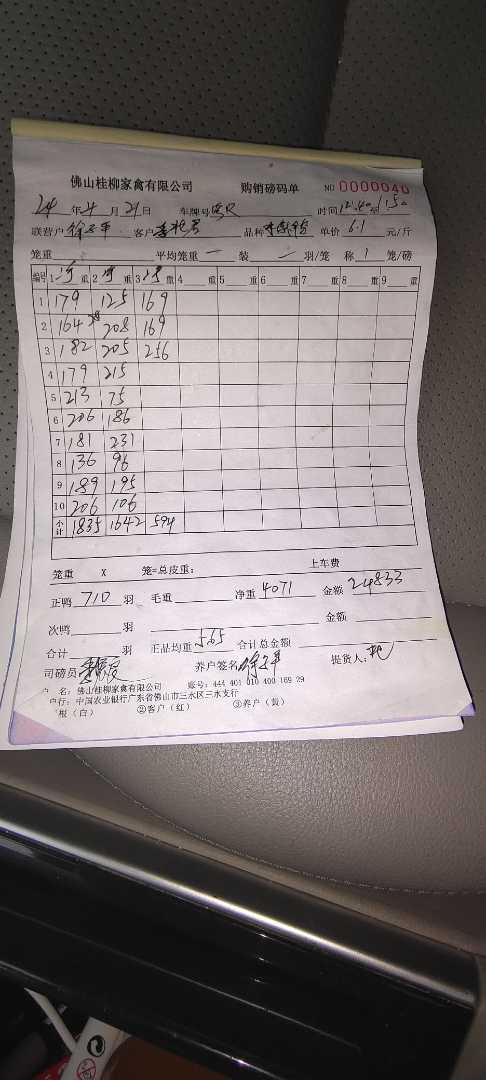 佛山桂柳家禽有限公司 购销磅码单 NO 0000040
24 年 4 月 21 日 车牌号 时间 12:40 至 1:50
联营户 客户 品种 单价 6.1 元/斤
笼重 平均笼重 一 装 一 羽/笼 称 1 笼/磅
编号 1 净 重 2 净 重 3 净 重 4 重 5 重 6 重 7 重 8 重 9 重
1 179 125 169
2 164 208 169
3 182 205 256
4 179 215
5 213 75
6 206 186
7 181 231
8 136 96
9 189 195
10 206 106
小计 1835 1642 594
笼重 X 笼=总皮重: 上车费
正鸭 710 羽 毛重 净重 4071 金额 24833
次鸭 羽 金额
合计 羽 正品均重 5.65 合计总金额
司磅员 养户签名 提货人:
户 名: 佛山桂柳家禽有限公司 账号: 444 401 010 400 169 29
户行: 中国农业银行广东省佛山市三水区三水支行
根(白) ②客户(红) ③养户(黄)